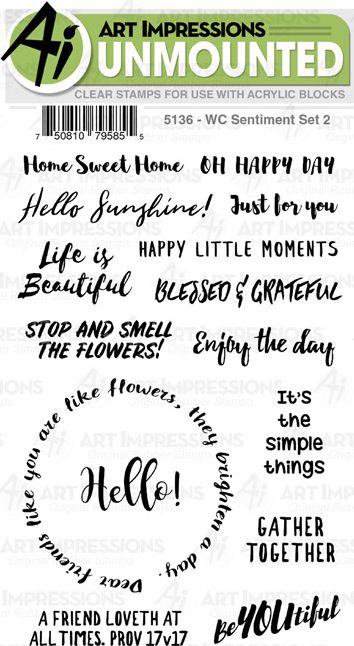 Ai ART IMPRESSIONS
UNMOUNTED
CLEAR STAMPS FOR USE WITH ACRYLIC BLOCKS
7 50810 79585 5
5136 - WC Sentiment Set 2
Home Sweet Home
OH HAPPY DAY
Hello Sunshine!
Just for you
Life is
Beautiful
HAPPY LITTLE MOMENTS
BLESSED & GRATEFUL
STOP AND SMELL
THE FLOWERS!
Enjoy the day
Dear friends like you are like flowers, they brighten a day.
Hello!
It's
the
simple
things
GATHER
TOGETHER
A FRIEND LOVETH AT
ALL TIMES. PROV 17v17
BeYOUtiful
Ai ART IMPRESSIONS
Original Rubber Stamps